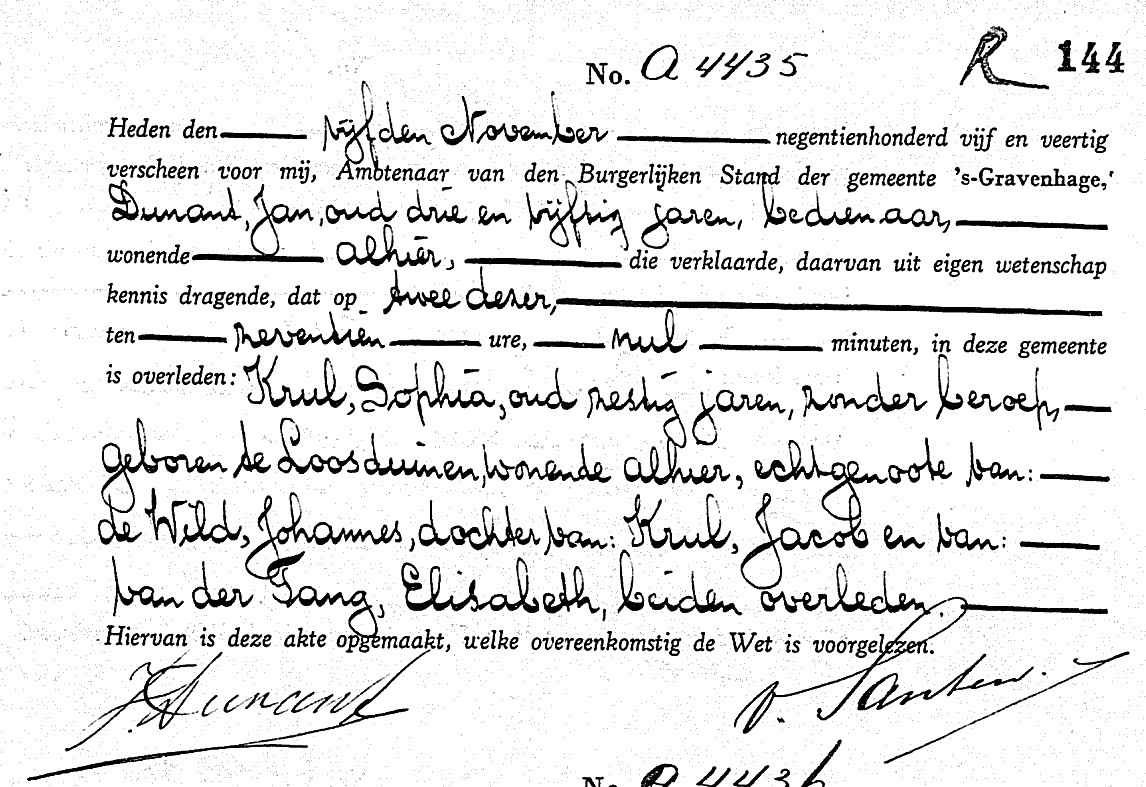 No. A 4435 R 144
Heden den vijfden November negentienhonderd vijf en veertig
verscheen voor mij, Ambtenaar van den Burgerlijken Stand der gemeente 's-Gravenhage,
Dunant, Jan, oud drie en vijftig jaren, bedienaar,
wonende alhier, die verklaarde, daarvan uit eigen wetenschap
kennis dragende, dat op twee dezer,
ten zeventien ure, nul minuten, in deze gemeente
is overleden: Krul, Sophia, oud zestig jaren, zonder beroep,
geboren te Loosduinen, wonende alhier, echtgenoote van:
de Wild, Johannes, dochter van: Krul, Jacob en van:
van der Tang, Elisabeth, beiden overleden.
Hiervan is deze akte opgemaakt, welke overeenkomstig de Wet is voorgelezen.
J. Dunant v. Santen.
No. A 4436